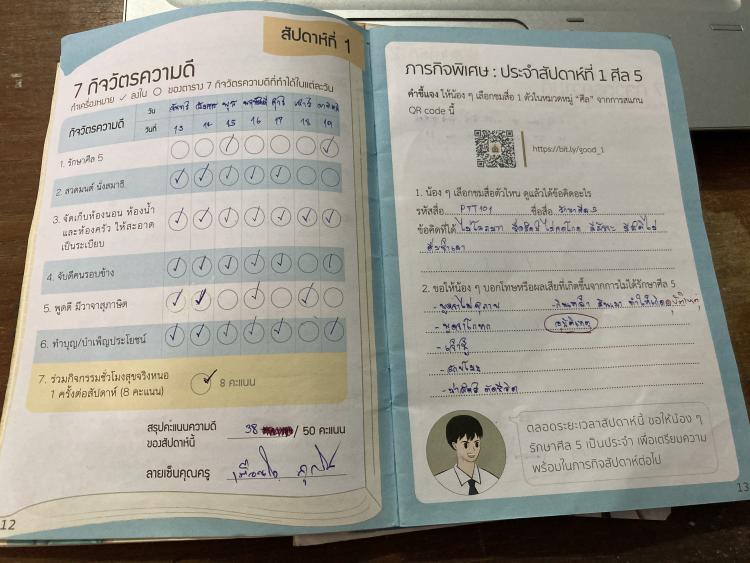 สัปดาห์ที่ 1
7 กิจวัตรความดี
ทำเครื่องหมาย ✓ ลงใน ○ ของตาราง 7 กิจวัตรความดีที่ทำได้ในแต่ละวัน
กิจวัตรความดี
วัน จันทร์ อังคาร พุธ พฤหัสบดี ศุกร์ เสาร์ อาทิตย์
วันที่ 13 14 15 16 17 18 19
1. รักษาศีล 5
2. สวดมนต์ นั่งสมาธิ
3. จัดเก็บห้องนอน ห้องน้ำ
และห้องครัว ให้สะอาด
เป็นระเบียบ
4. จับดีคนรอบข้าง
5. พูดดี มีวาจาสุภาษิต
6. ทำบุญ/บำเพ็ญประโยชน์
7. ร่วมกิจกรรมชั่วโมงสุขจริงหนอ
1 ครั้งต่อสัปดาห์ (8 คะแนน)
8 คะแนน
สรุปคะแนนความดี
ของสัปดาห์นี้
38 / 50 คะแนน
ลายเซ็นคุณครู
12
ภารกิจพิเศษ : ประจำสัปดาห์ที่ 1 ศีล 5
คำชี้แจง ให้น้อง ๆ เลือกชมสื่อ 1 ตัวในหมวดหมู่ "ศีล" จากการสแกน
QR code นี้
https://bit.ly/good_1
1. น้อง ๆ เลือกชมสื่อตัวไหน ดูแล้วได้ข้อคิดอะไร
รหัสสื่อ PTT101 ชื่อสื่อ รักษาศีล 5
ข้อคิดที่ได้ ไม่โลภมาก ซื่อสัตย์ ไม่คดโกง
2. ขอให้น้อง ๆ บอกโทษหรือผลเสียที่เกิดขึ้นจากการไม่ได้รักษาศีล 5
- พูดจาไม่สุภาพ
- พูดจาโกหก
อุบัติเหตุ
- เจ้าชู้
- ลักขโมย
- ฆ่าสัตว์ ตัดชีวิต
ตลอดระยะเวลาสัปดาห์นี้ ขอให้น้อง ๆ
รักษาศีล 5 เป็นประจำ เพื่อเตรียมความ
พร้อมในภารกิจสัปดาห์ต่อไป
13